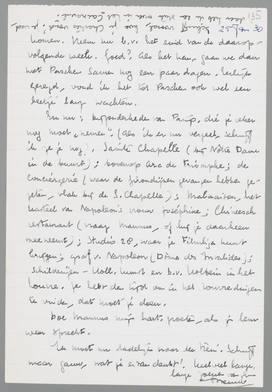 komen. Neem nu b.v. het eind van de daarop-
volgende week. Goed? Als het kan, gaan we dan
met Paschen samen nog een paar dagen. Eerlijk
gezegd, vond ik het tot Paschen ook wel een
beetje lang wachten.
En nu: bijzonderheden van Parijs, die je eker
nog moet "nemen". (Als ik er nu vergeet, schrijf
ik ze je nog). Sainte Chapelle (bij Nôtre Dame
in de buurt); bovenop Arc de Triomphe; de
conciërgerie (waar de Girondijnen gevangen hebben ge-
zeten, vlak bij de S. Chapelle); Malmaison, het
kasteel van Napoleon's vrouw Joséphine; Chineesch
restaurant (vraag Mammie, of hij je daarheen
meeneemt); Studio 28, waar je filmpje kunt
krijgen; graf v. Napoleon (Dôme des Invalides);
Schilderijen - Holl. kunst en b.v. Holbein in het
Louvre. Je hebt de tijd om in het Louvre dingen
te vinden, dat moet je doen.
Doe Mammie mijn hart. groeten, als je hem
weer spreekt.
Ik moet nu dadelijk naar de trein. Schrijf
maar gauw, wat je ervan denkt. Veel veel liefs,